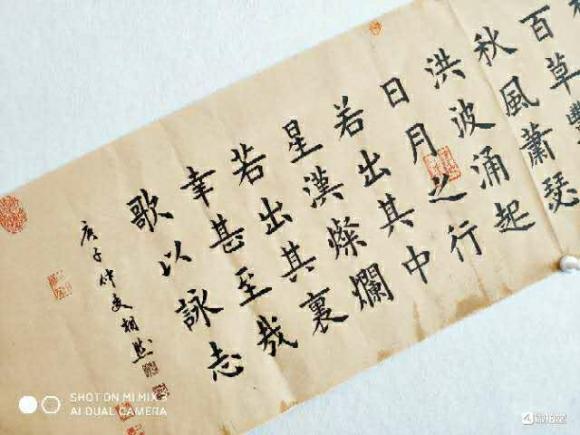 百草豐
秋風蕭瑟
洪波涌起
日月之行
若出其中
星漢燦爛
若出其裏
幸甚至哉
歌以詠志
庚子仲夏
SHOT ON MI MIX 3
AI DUAL CAMERA